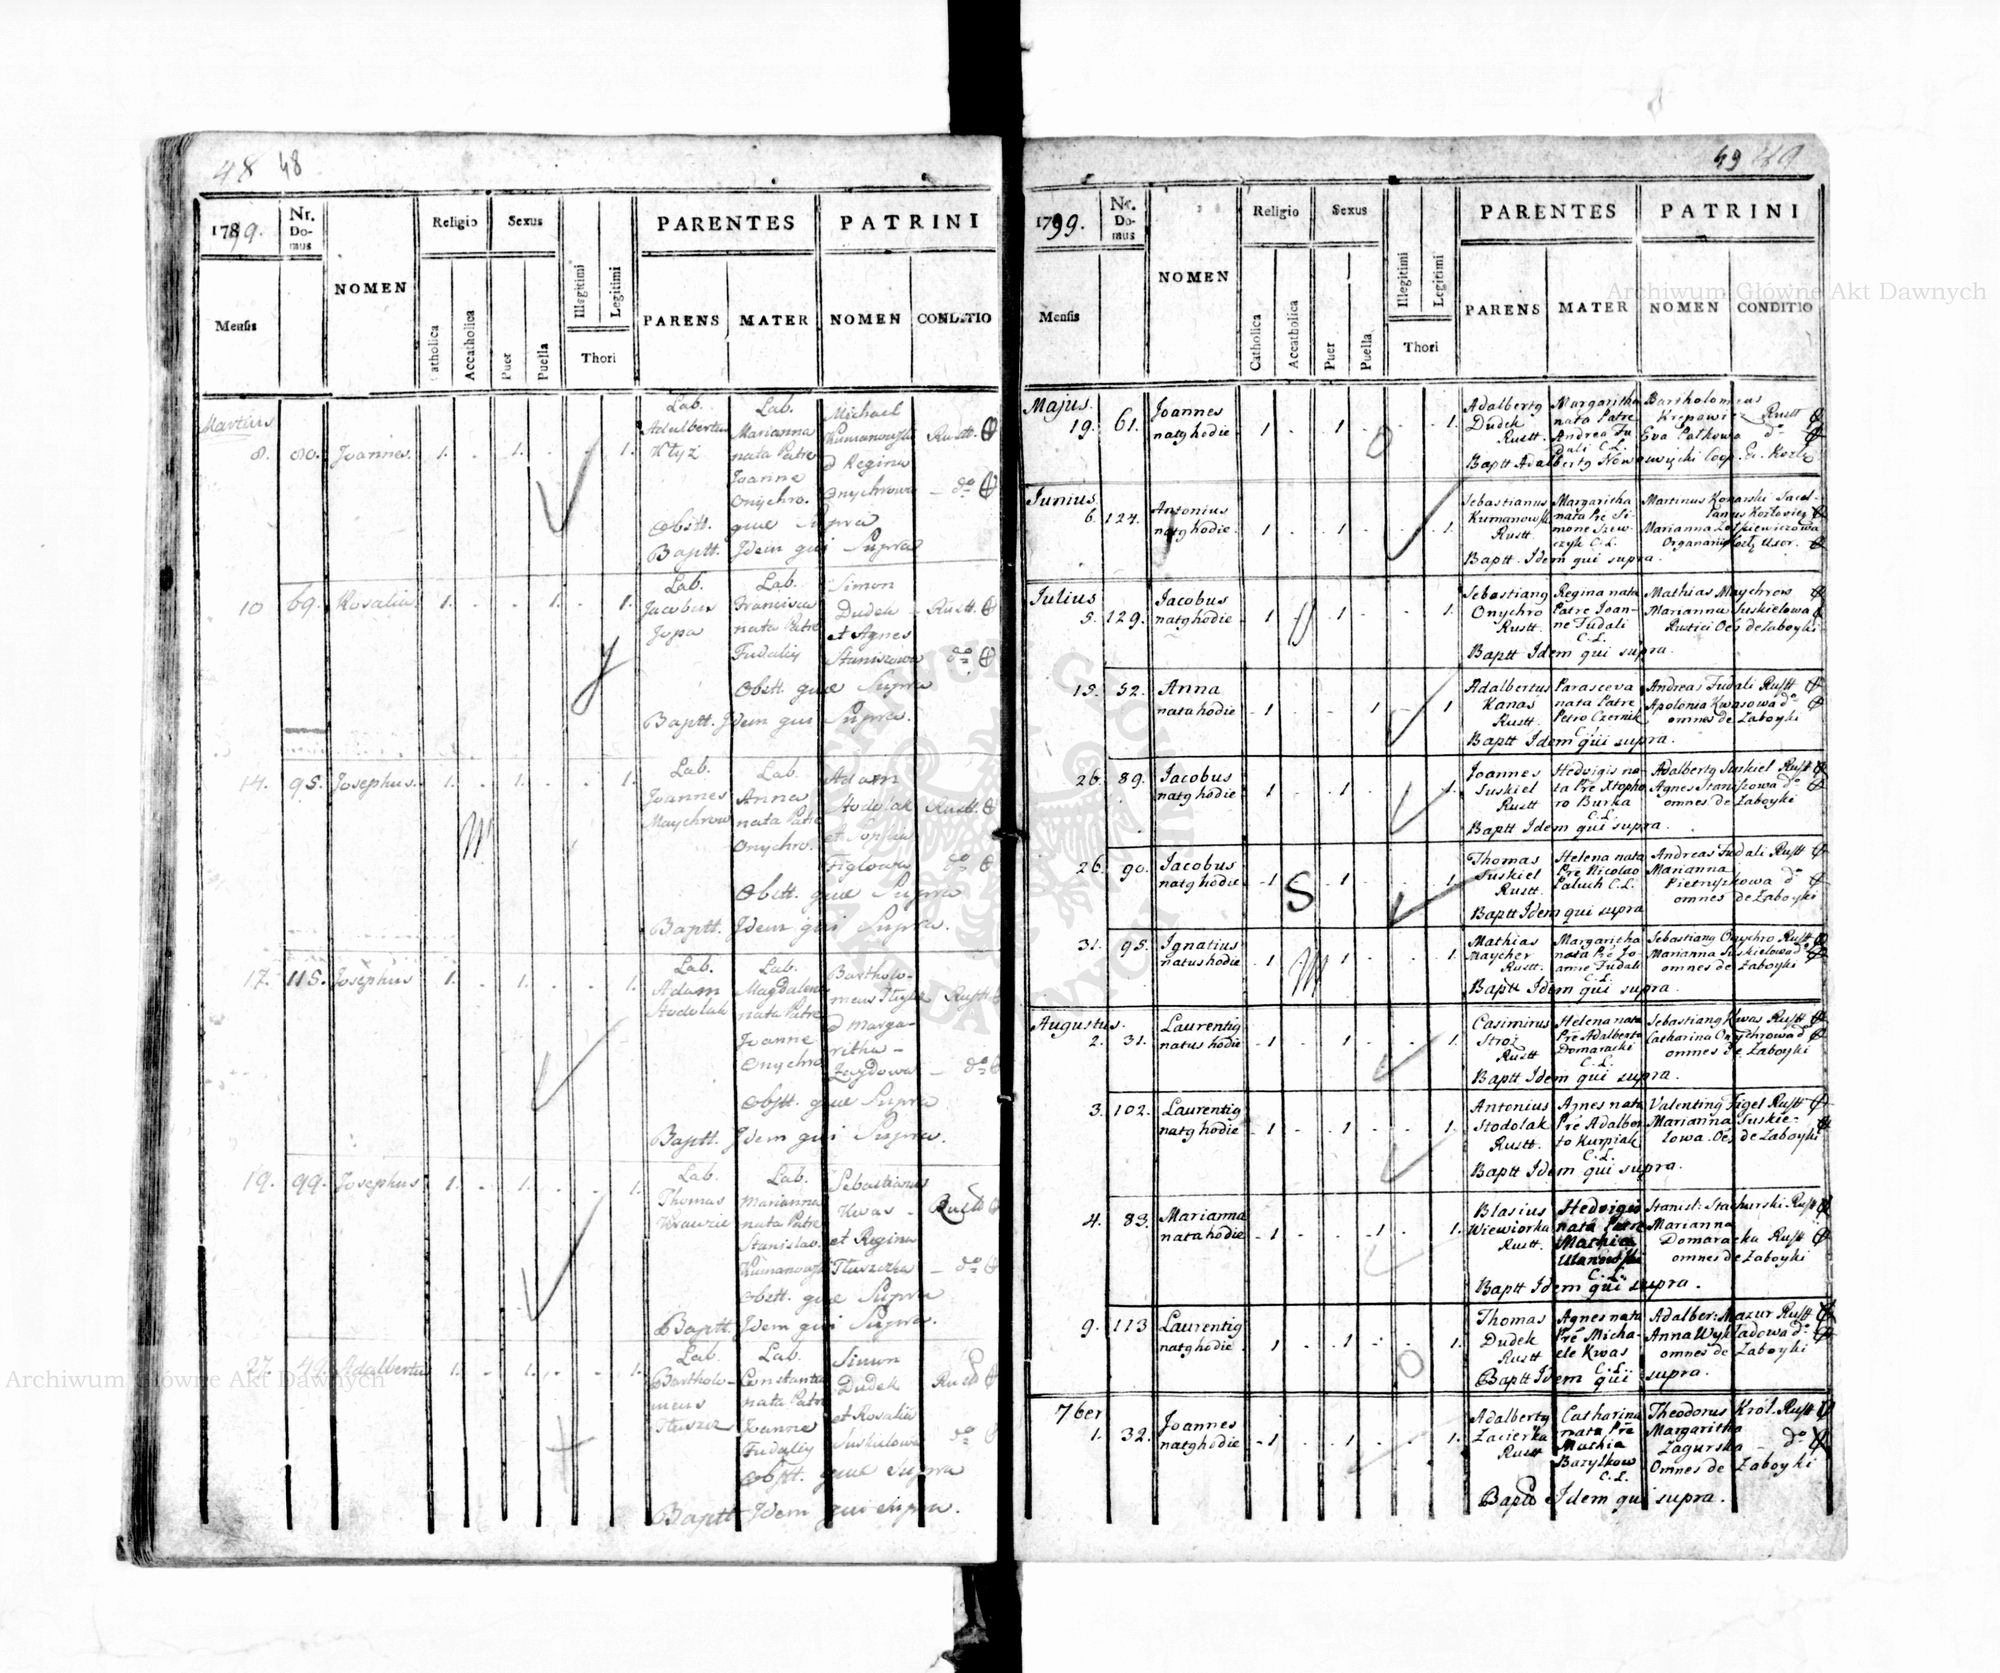 48 48
1799.
Nr. Do-mus
NOMEN
Religio
Sexus
PARENTES
PATRINI
Mensis
Catholica
Accatholica
Puer
Puella
Illegitimi
Legitimi
Thori
PARENS
MATER
NOMEN
CONDITIO
Martius
8. 80. Joannes 1. . 1. . . 1.
Lab. Lab. Michael
Adalbertus Marianna Kumanowski Rustt.
Kłyż nata Patre & Regina
Joanne Onychrowa do
Onychro.
Obstt. quae Supra
Baptt. Idem qui Supra
10 69. Rosalia 1. . . 1. . 1.
Lab. Lab. Simon
Jacobus Francisca Dudek Rustt.
Jopa nata Patre et Agnes
Fudaliy Staniszowa do
Obstt. quae Supra
Baptt. Idem qui Supra.
14. 95. Josephus. 1. . 1. . . 1.
Lab. Lab. Adam
Joannes Anna Stodolak Rustt.
Maychrow nata Patre et Sophia
Onychro. Figlowa do
Obstt. quae Supra
Baptt. Idem qui Supra.
17. 115. Josephus 1. . 1. . . 1.
Lab. Lab. Bartholo-
Adam Magdalena meus Rustt
Stodolak nata Patre & Marga-
Joanne ritha
Onychro Zaydowa do
Obstt. quae Supra
Baptt. Idem qui Supra.
19. 99. Josephus 1. . 1. . . 1.
Lab. Lab. Sebastianus
Thomas Marianna Kwas Rustt
Krawziec nata Patre et Regina
Stanislao. Tłuszczka do
Kumanowski
Obstt. quae Supra
Baptt. Idem qui Supra.
27. 49. Adalbertus 1. . 1. . . 1.
Lab. Lab. Simon
Bartholo- Constantia Dudek Rustt
meus nata Patre et Rosalia
Tłuszcz Joanne Suskulowa do
Fudaliy
Obstt. quae Supra
Baptt Idem qui supra.
49 49
1799.
Nr. Do-mus
NOMEN
Religio
Sexus
PARENTES
PATRINI
Mensis
Catholica
Accatholica
Puer
Puella
Illegitimi
Legitimi
Thori
PARENS
MATER
NOMEN
CONDITIO
Majus.
19. 61. Joannes natg hodie 1 . 1 . . 1.
Adalbertg Margaritha Bartholomeus
Dudek nata Patre Krepawiez Rustt
Rustt. Andrea Fu- Eva Patkowa do
dali C.L.
Baptt Adalbertg Nowowieyski Coop.
Junius
6. 124. Antonius natg hodie 1 . 1 . . 1.
Sebastianus Margaritha Martinus Konarski
Kumanowski nata Pre Si-
Rustt. mone Szew- Marianna Zołkiewiczowa
czyk C.L. Uxor.
Baptt. Idem qui supra.
Julius
5. 129. Jacobus natg hodie 1 . 1 . . 1.
Sebastiang Regina nata Mathias Maychrow
Onychro Patre Joan- Marianna Suskielowa
Rustt. ne Fudali Rustici Oes de Zaboyki
C.L.
Baptt Idem qui supra.
15. 52. Anna nata hodie 1 . . 1 . 1
Adalbertus Parasceva Andreas Fudali Rustt
Kanas nata Patre Apolonia Kwasowa do
Rustt. Petro Czernik omnes de Zaboyki
Baptt Idem qui supra.
26. 89. Jacobus natg hodie 1 . 1 . . 1.
Joannes Hedvigis na- Adalbertg Suskiel Rustt
Suskiel ta Pre Xtopho- Agnes Staniszowa do
Rustt ro Burka omnes de Zaboyki
C.L.
Baptt Idem qui supra.
26. 90. Jacobus natg hodie 1 . 1 . . 1.
Thomas Helena nata Andreas Fudali Rustt
Suskiel Pre Nicolao Marianna
Rustt. Paluch C.L. Pietryszkowa do
omnes de Zaboyki
Baptt Idem qui supra
31. 95. Ignatius natus hodie 1 . 1 . . 1.
Mathias Margaritha Sebastiang Onychro Rustt
Maycher nata Pre Jo- Marianna Suskielowa do
Rustt. anne Fudali omnes de Zaboyki
C.L.
Baptt Idem qui supra.
Augustus.
2. 31. Laurentig natus hodie 1 . 1 . . 1.
Casimirus Helena nata Sebastiang Kwas Rustt
Stroż Pre Adalberto Catharina Onychrowa do
Rustt Domaracki omnes de Zaboyki
C.L.
Baptt Idem qui supra.
3. 102. Laurentig natg hodie 1 . 1 . . 1.
Antonius Agnes nata Valenting Figel Rustt
Stodolak Pre Adalber- Marianna Suskie-
Rustt. to Kurpiak lowa. Oes de Zaboyki
C.L.
Baptt Idem qui supra.
4. 83. Marianna nata hodie 1 . . 1 . 1.
Blasius Hedvigis Stanisl: Stachurski Rustt
Wiewiorka nata Patre Marianna
Rustt. Mathia Domaracka Rustt
Ulanowski omnes de Zaboyki
C.L.
Baptt Idem qui supra.
9. 113 Laurentig natg hodie 1 . 1 . . 1.
Thomas Agnes nata Adalber: Mazur Rustt
Dudek Pre Micha- Anna Wykładowa do
Rustt ele Kwas omnes de Zaboyki
C.L.
Baptt Idem qui supra.
7ber
1. 32. Joannes natg hodie 1 . 1 . . 1.
Adalbertg Catharina Theodorus Krol. Rustt
Zacierka nata Pre Margaritha
Rustt Mathia Zagurska do
Bazylkow Omnes de Zaboyki
C.L.
Baptt Idem qui supra.
Archiwum Główne Akt Dawnych
Archiwum Główne Akt Dawnych
ARCHIWUM GŁÓWNE AKT DAWNYCH